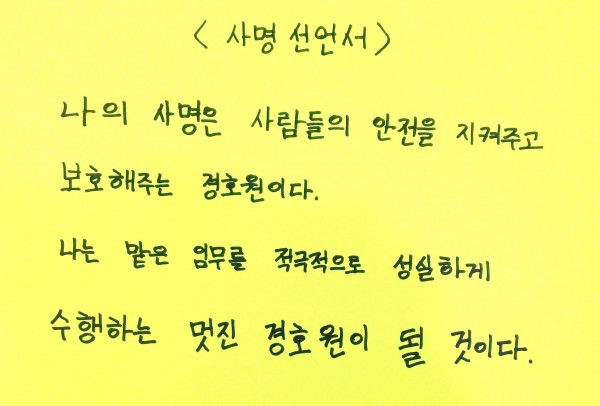 < 사명 선언서 >
나의 사명은 사람들의 안전을 지켜주고
보호해주는 경호원이다.
나는 맡은 임무를 적극적으로 성실하게
수행하는 멋진 경호원이 될 것이다.